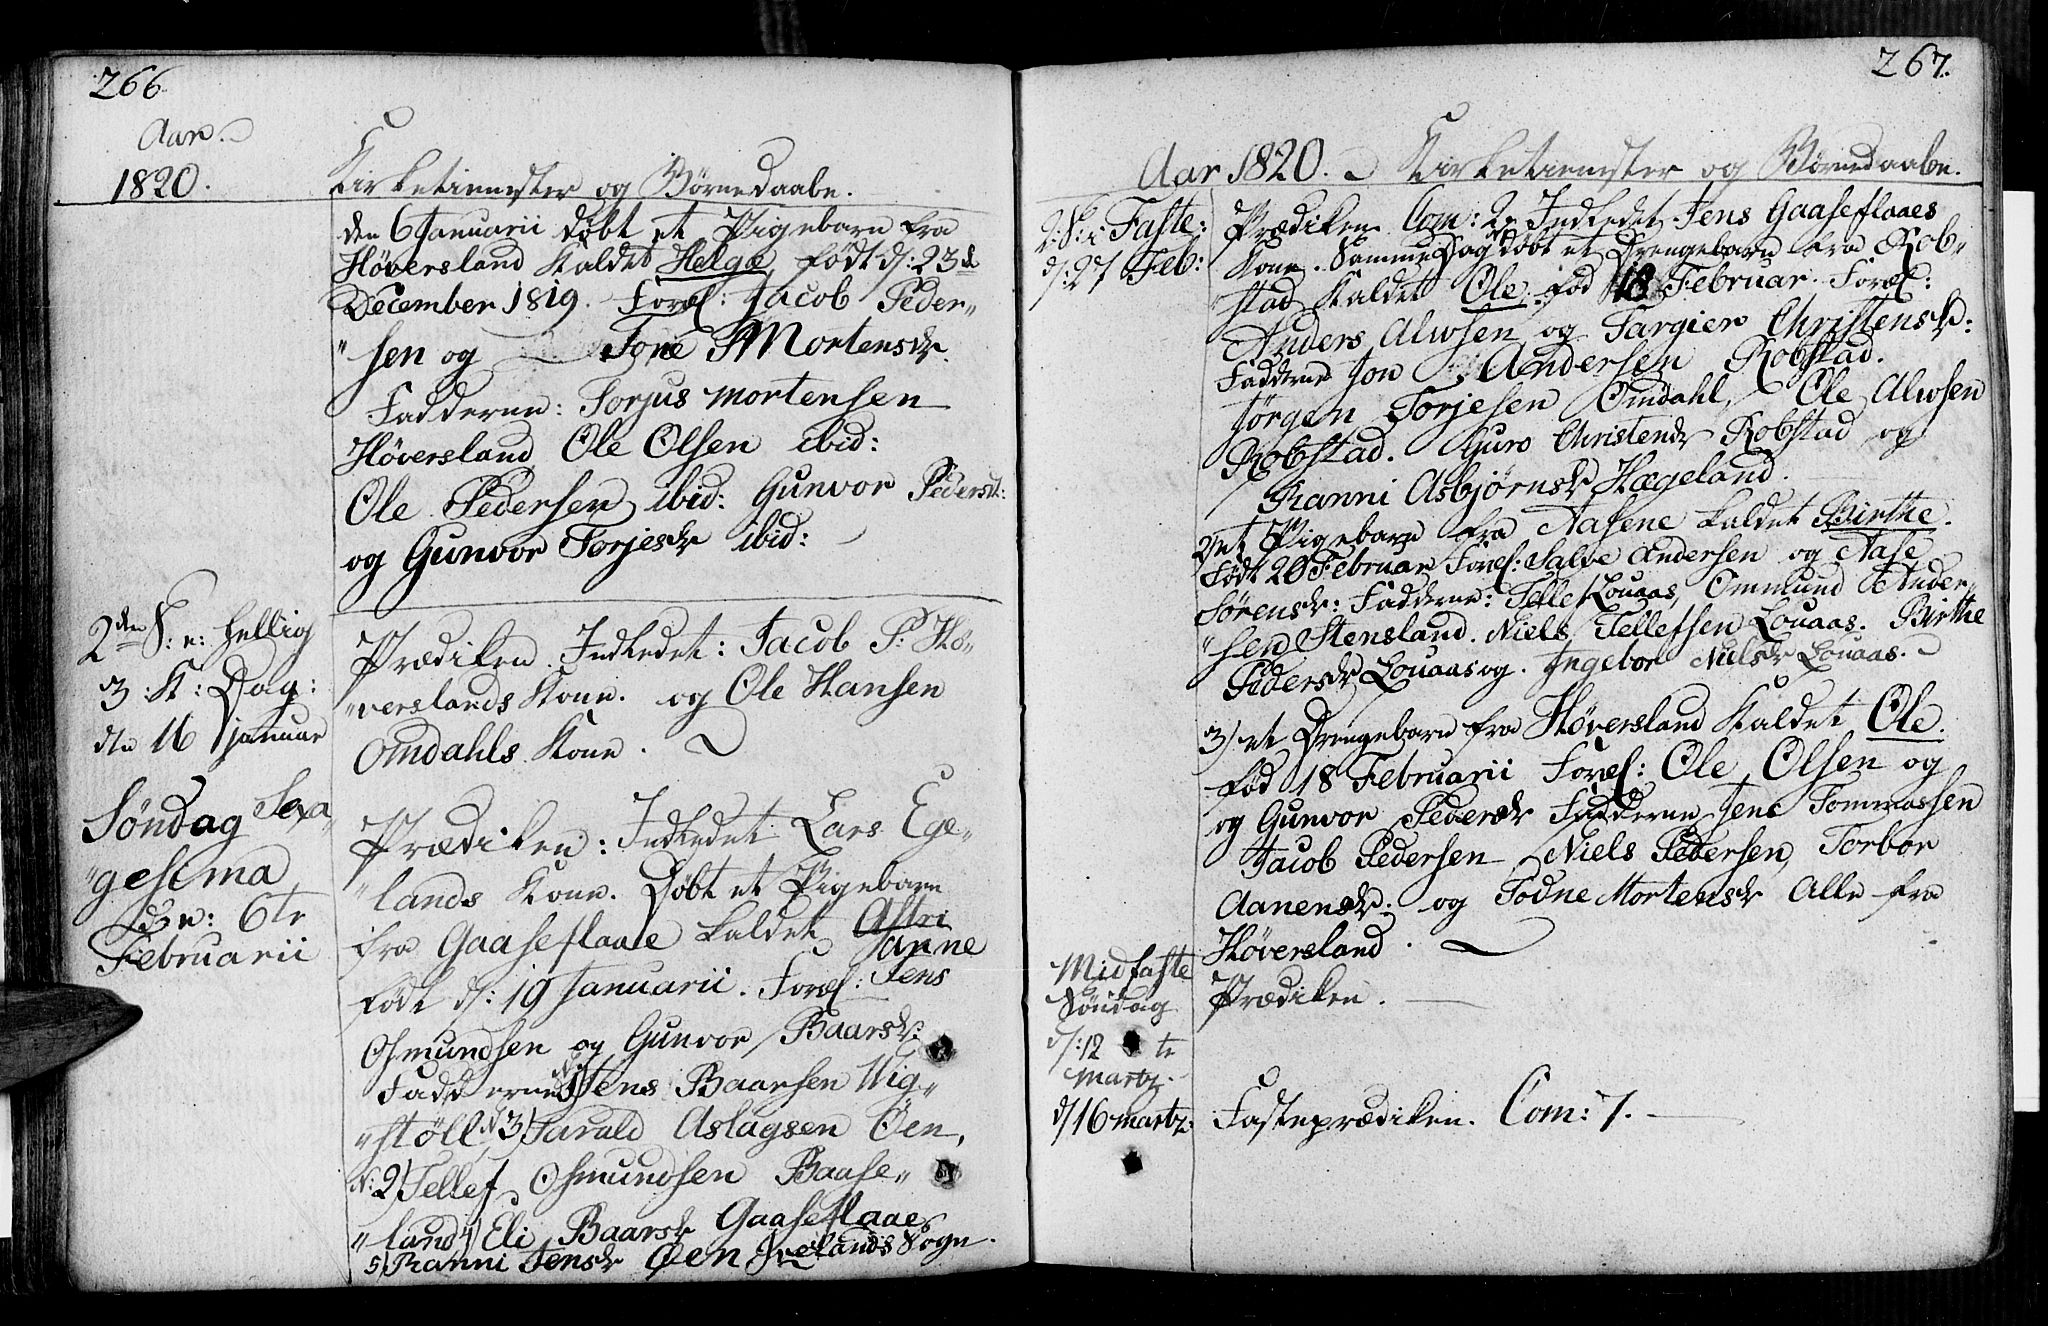 266.
Aar.
1820.
Kirketienester og Børnedaabe.
den 6 Januarii døbt et Pigebarn fra
Høversland kaldet Helge, født d: 23de
December 1819. Foræl: Jacob Peder„
„sen og Tone Mortensdr.
Fadderne: Torjus Mortensen
Høversland, Ole Olsen ibid:
Ole Pedersen ibid: Gunvor Pedersdt:
og Gunvor Torjesdr ibid:
2den S: e: Hellig
3 K: Dag:
den 16 Januar
Prædiken. Indledet: Jacob P: Hø„
„verslands Kone. og Ole Hansen
Omdahls Kone.
Søndag Sexa„
„gesima
den: 6te
Februarii
Prædiken: Indledet Lars Ege„
„lands Kone. Døbt et Pigebarn
fra Gaaseflaae kaldet Astri
Janne
født d: 19 Januarii. Foræl: Jens
Osmundsen og Gunvor Baarsdr:
Fadderne N1) Jens Baarsen Wig„
„støll, N3) Harald Aslagsen Øen,
N: 2) Tellef Osmundsen Baase„
„land 4) Eli Baarsdr Gaaseflaae
5) Ranni Jensdr Øen Ivelands Sogn.
267.
Aar 1820. Kirketienester og Børnedaabe.
2: S: i Faste:
d: 27 Feb:
Prædiken Com: 2. Indledet Jens Gaaseflaaes
Kone. Samme Dag døbt et Drengebarn fra Rob„
„stad kaldet Ole, fød 18 Februar. Foræl:
Anders Alwsen og Targier Christensdr:
Fadderne Jon Andersen Robstad.
Jørgen Torjesen Omdahl, Ole Alwsen
Robstad. Guro Christensdr Robstad og
Ranni Asbjørnsdr Hægeland.
2) et Pigebarn fra Aasene kaldet Birthe.
født 20 Februar Foræl: Salve Andersen og Aase
Sørensdr: Fadderne: Tellef Louaas, Ommund Ander„
„sen Stensland. Niels Tellefsen Louaas. Birthe
Pedersdr Louaas og. Ingebor Nielsdr Louaas.
3) et Drengebarn fra Høversland kaldet Ole.
fød 18 Februarii Foræl: Ole Olsen og
og Gunvor Pedersdr Fadderne Jens Tommassen
Jacob Pedersen, Niels Pedersen, Torbor
Aanensdr: og Todne Mortensdr Alle fra
Høversland.
Midfaste
Søndag
d: 12te
Martz.
Prædiken.
d/16 Martz:
Fasteprædiken. Com: 7.